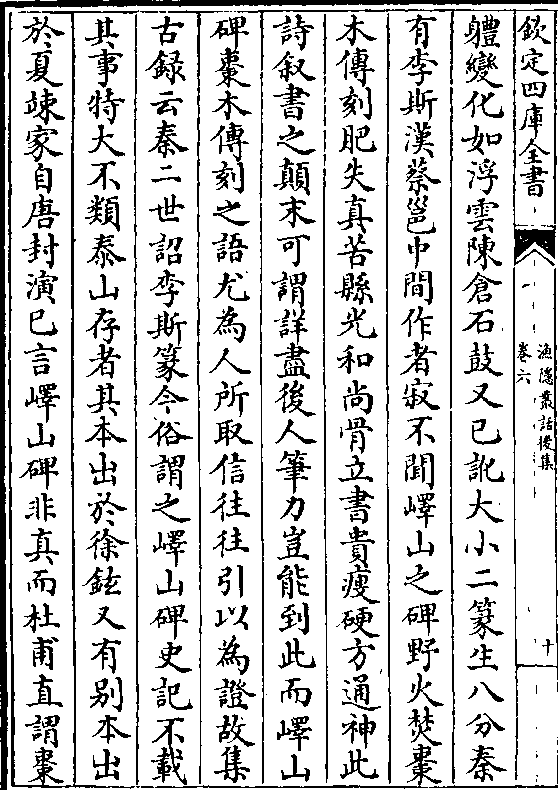 欽定四庫全書
漁隱叢話後集
卷六
十
軆變化如浮雲陳倉石鼓又已訛大小二篆生八分秦
有李斯漢蔡邕中間作者寂不聞嶧山之碑野火焚棗
木傳刻肥失真苦縣光和尚骨立書貴瘦硬方通神此
詩叙書之顛末可謂詳盡後人筆力豈能到此而嶧山
碑棗木傳刻之語尤為人所取信往往引以為證故集
古録云秦二世詔李斯篆今俗謂之嶧山碑史記不載
其事特大不類泰山存者其本出於徐鉉又有别本出
於夏竦家自唐封演已言嶧山碑非真而杜甫直謂棗